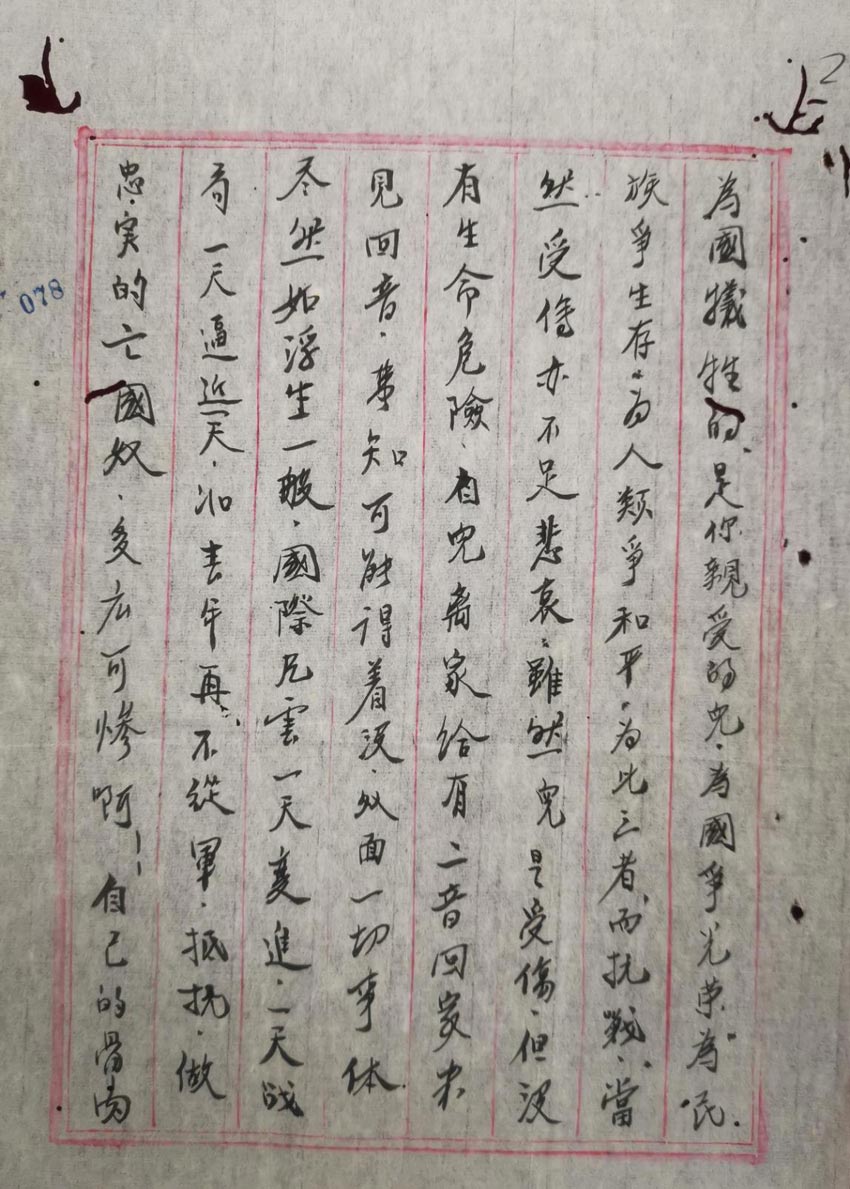 2
078
為國犧牲的、是你親受的兒、為國爭光荣為民
族爭生存、為人類爭和平、為此三者、而抗戰、當
然受傷亦不足悲哀、雖然兒是受傷、但没
有生命危險、自兒离家给有二音回家未
見回音、知可能得着没、双面一切事体
尽然如浮生一般、國際風雲一天变進、一天战
一天逼近一天、如青年再不從軍、抵抗、做
忠实的亡國奴、多么可惨啊!!自己的骨肉